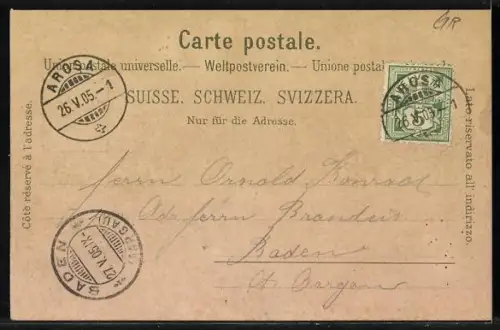 GR
Carte postale.
Union postale universelle. — Weltpostverein. — Unione postale
SUISSE. SCHWEIZ. SVIZZERA.
Nur für die Adresse.
Côté réservé à l'adresse.
Lato riservato all' indirizzo.
AROSA
26.V.05.-1
AROSA
26.V.05
5
Herrn Arnold Konrad
Adr Herrn Brandeis
Baden
Kt. Aargau
BADEN (AARGAU)
27.V.05.IX